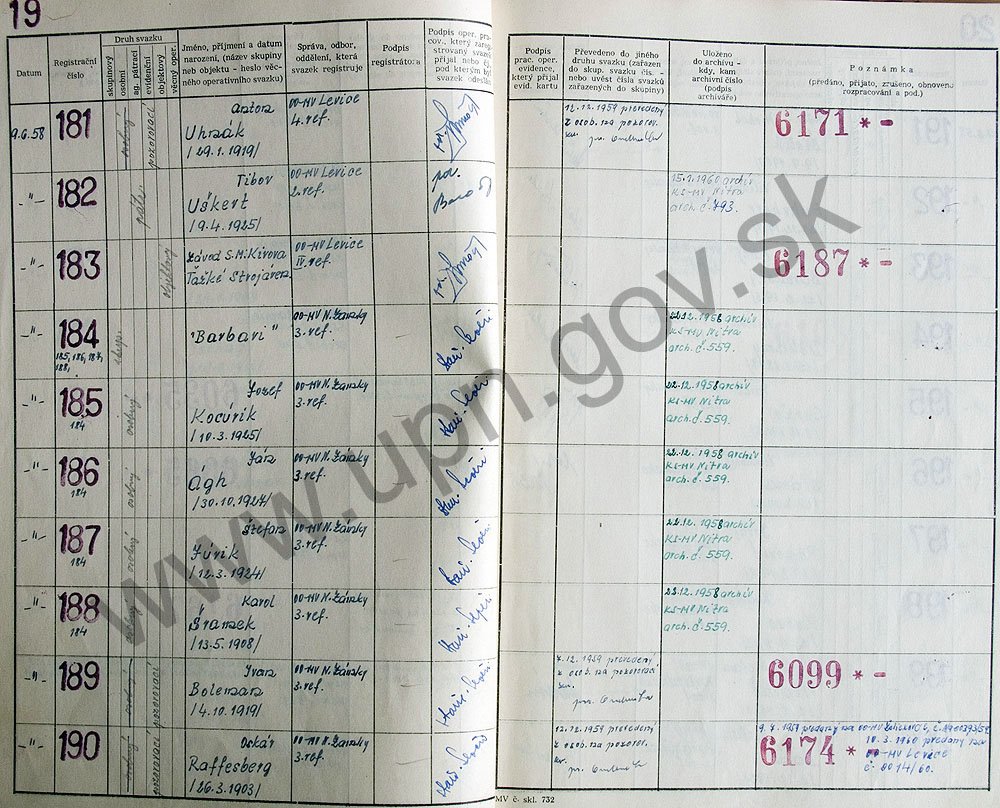 19
Datum
Registrační číslo
Druh svazku
skupinový
osobní
ag. pátrací
evidenční
objektový
věcný oper.
Jméno, příjmení a datum
narození, (název skupiny
neb objektu - heslo věc-
ného operativního svazku)
Správa, odbor,
oddělení, která
svazek registruje
Podpis
registrátora
Podpis oper. prac
cov., který zareg
strovaný svazek
přijal nebo ěj.
pod kterým by
svazek odeslá
Podpis
prac. oper.
evidence,
který přijal
evid. kartu
Převedeno do jiného
druhu svazku (zařazen
do skup. svazku čís. -
nebo uvést čísla svazků
zařazených do skupiny)
Uloženo
do archivu -
kdy, kam
archivní číslo
(podpis
archiváře)
Poznámka
(předáno, přijato, zrušeno, obnoveno
rozpracování a pod.)
9.6.58
181
osobný
pozorovací
Anton
Uhnák
/29.1.1919/
OO-MV Levice
4. ref.
12.12.1959 prevedený
z osob. na pozorov.
6171 * -
-"-
182
Tibor
Uškert
/9.4.1925/
OO-MV Levice
2. ref.
15.1.1960 archív
KS-MV Nitra
arch. č. 793.
-"-
183
objektový
Závod S.M. Kirova
Ťažké Strojáren
OO-MV Levice
IV. ref.
6187 * -
-"-
184
185, 186, 187,
188,
skup.
"Barbari"
OO-MV N. Zámky
3. ref.
22.12.1958 archív
KS-MV Nitra
arch. č. 559.
-"-
185
184
osobný
Jozef
Kocúrik
/10.3.1925/
OO-MV N. Zámky
3. ref.
22.12.1958 archív
KS-MV Nitra
arch. č. 559.
-"-
186
184
osobný
Ján
Ágh
/30.10.1927/
OO-MV N. Zámky
3. ref.
22.12.1958 archív
KS-MV Nitra
arch. č. 559.
-"-
187
184
osobný
Štefan
Júrik
/12.3.1924/
OO-MV N. Zámky
3. ref.
22.12.1958 archív
KS-MV Nitra
arch. č. 559.
-"-
188
184
osobný
Karol
Šrámek
/13.5.1908/
OO-MV N. Zámky
3. ref.
22.12.1958 archív
KS-MV Nitra
arch. č. 559.
-"-
189
osobný
pozorovací
Ivan
Boleman
/4.10.1919/
OO-MV N. Zámky
3. ref.
7.12.1959 prevedený
z osob. na pozorov.
6099 * -
-"-
190
osobný
pozorovací
Oskár
Raffesberg
/26.3.1903/
OO-MV N. Zámky
3. ref.
12.12.1959 prevedený
z osob. na pozorov.
6174 * -
10.3.1960 predaný na
OO-MV Levice
č. 0014/60.
MV č. skl. 732
www.upn.gov.sk